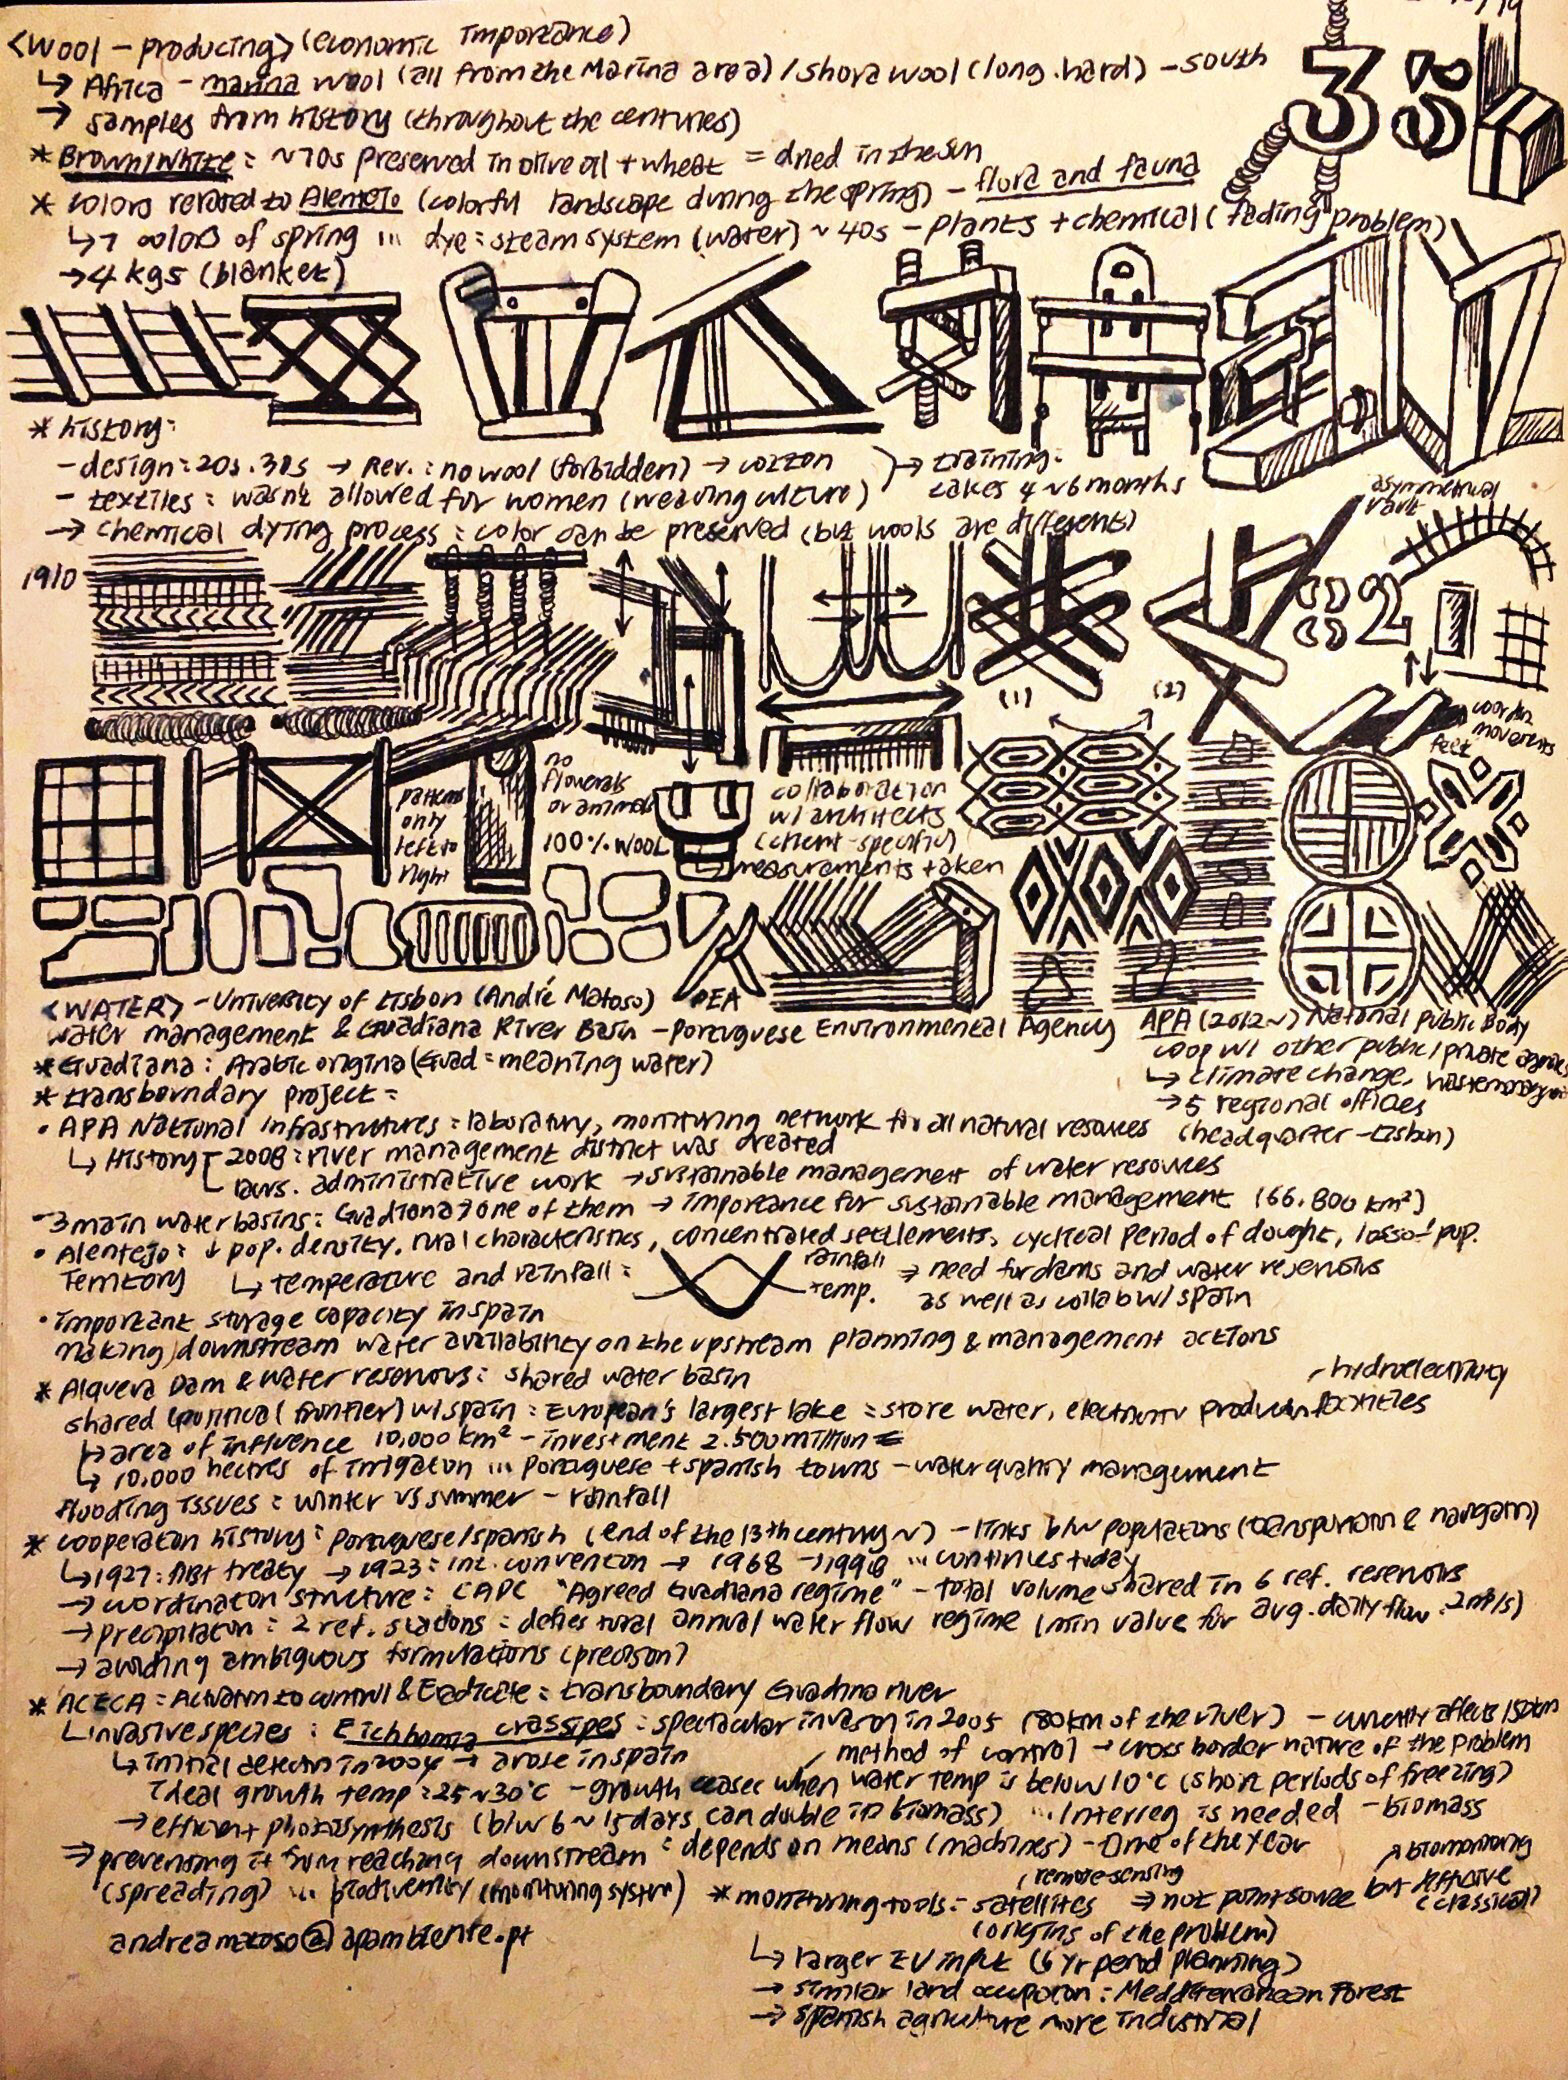 <Wool - producing> (economic importance)
↳ Africa - marina wool (all from the Marina area) / shora wool (long. hard) - south
→ samples from history (throughout the centuries)
* Brown/white: ~70s preserved in olive oil + wheat = dried in the sun
* colors related to Alentejo (colorful landscape during the spring) - flora and fauna
↳ 7 colors of spring ... dye: steam system (water) ~ 40s - plants + chemical (fading problem)
→ 4 kgs (blanket)
38
* history:
- design: 20s. 30s → Rev.: no wool (forbidden) → cotton
→ training: takes 4~6 months
- textiles: wasn't allowed for women (weaving culture)
→ chemical dying process: color can be preserved (but wools are different)
asymmetrical
1910
82
(1)
(2)
movements
felt
patterns
only
left to
right
no
flowerals
or animals
100% WOOL
collaboration
w/ architects
(client-specific)
→ measurements taken
<WATER> - University of Lisbon (André Matoso) PEA
water management & Guadiana River Basin - Portuguese Environmental Agency APA (2012~) National Public Body
coop w/ other public/private agencies
↳ climate change,
→ 5 regional offices
(headquarter - Lisbon)
* Guadiana: Arabic origina (Guad = meaning water)
* transboundary project:
• APA National Infrastrutures: laboratory, monitoring network for all natural resources
↳ History 2008: river management district was created
laws. administrative work → sustainable management of water resources
- 3 main water basins: Guadiana 7 one of them → importance for sustainable management (66.800 km²)
• Alentejo: ↓ pop. density, rural characteristics, concentrated settlements, cyclical period of dought, loss of pop.
Territory ↳ temperature and rainfall: rainfall ⇒ need for dams and water reservoirs
temp. as well as collab w/ spain
• important storage capacity in spain
making downstream water availability on the upstream planning & management actions
* Alqueva Dam & water resorvous: shared water basin
- hydroelectricity
shared (political frontier) w/ spain: European's largest lake = store water, electricity production facilities
↳ area of influence 10.000 km² - investment 2.500 million €
↳ 10.000 hectres of irrigation ... Portuguese + spanish towns - water quality management
flooding issues: winter vs summer - rainfall
* cooperation history: Portuguese/spanish (end of the 13th century ~) - links b/w populations (transportation & navigation)
↳ 1927: treaty → 1923: int. convention → 1968 → 1998 ... continues today
→ coordination structure: CADC "Agreed Guadiana regime" - total volume shared in 6 ref. reservoirs
→ precipitation: 2 ref. stations: defies total annual water flow regime (min value for avg. daily flow: 2m³/s)
→ avoiding ambiguous formulations (precison)
* ACECA: Actuation to control & Eradicate: transboundary Guadina river
↳ invasive species: Eichhornia crassipes: spectacular invason in 2005 (80km of the river) - currently affects 150km
↳ initial detection in 2004 → arose in spain
method of control → cross border nature of the problem
ideal growth temp: 25~30°C - growth ceases when water temp is below 10°C (short periods of freezing)
→ efficient photosynthesis (b/w 6~15 days can double in biomass) ... Interreg is needed - biomass
⇒ preventing it from reaching downstream: depends on means (machines) - time of the year
(spreading) ... biodiversity (monitoring system)
* monitoring tools: satellites (remote-sensing ⇒ not point source but effusive (classical)
biomonitoring
(origins of the problem)
andreamatoso@apambiente.pt
↳ larger EU input (6 yr period planning)
→ similar land occupation: Mediterranean Forest
→ spanish agriculture more industrial